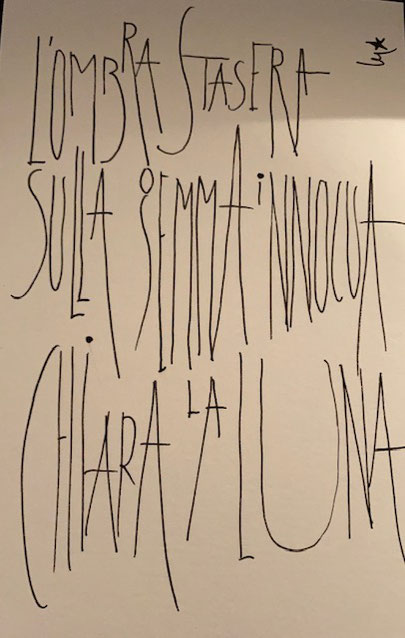 L'OMBRA STASERA
SULLA gEMMA iNNOCUA
CHiARA LA LUNA